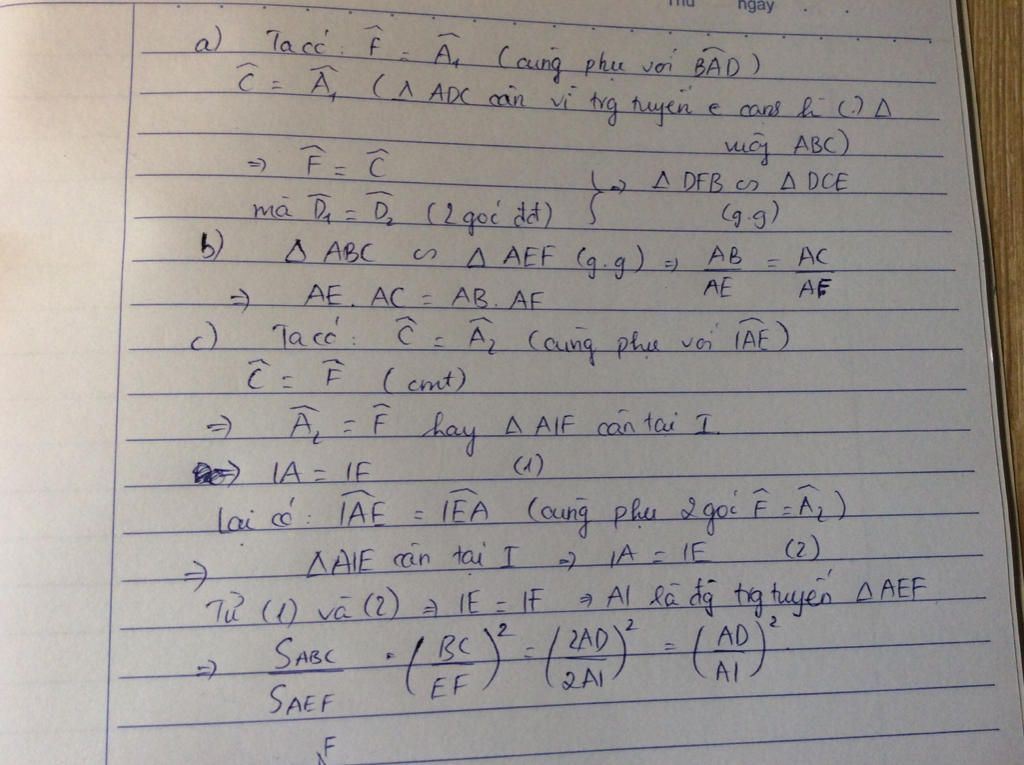 Thứ ngày . .
a) Ta có : F̂ = Â₁ (cùng phụ với BÂD)
Ĉ = Â₁ (Δ ADC cân vì trg tuyến e cạnh h (.) Δ
vuông ABC)
⇒ F̂ = Ĉ
mà D̂₁ = D̂₂ (2 góc đđ) } ⇒ Δ DFB ∽ Δ DCE
(g.g)
b) Δ ABC ∽ Δ AEF (g.g) ⇒ AB/AE = AC/AF
⇒ AE. AC = AB. AF
c) Ta có : Ĉ = Â₂ (cùng phụ với IÂE)
Ĉ = F̂ (cmt)
⇒ Â₂ = F̂ hay Δ AIF cân tại I.
⇒ IA = IF (1)
Lại có : IÂE = IÊA (cùng phụ 2 góc F̂ = Â₂)
⇒ ΔAIE cân tại I ⇒ IA = IE (2)
Từ (1) và (2) ⇒ IE = IF ⇒ AI là đg trg tuyến Δ AEF
⇒ S_ABC/S_AEF = (BC/EF)² = (2AD/2AI)² = (AD/AI)².
F